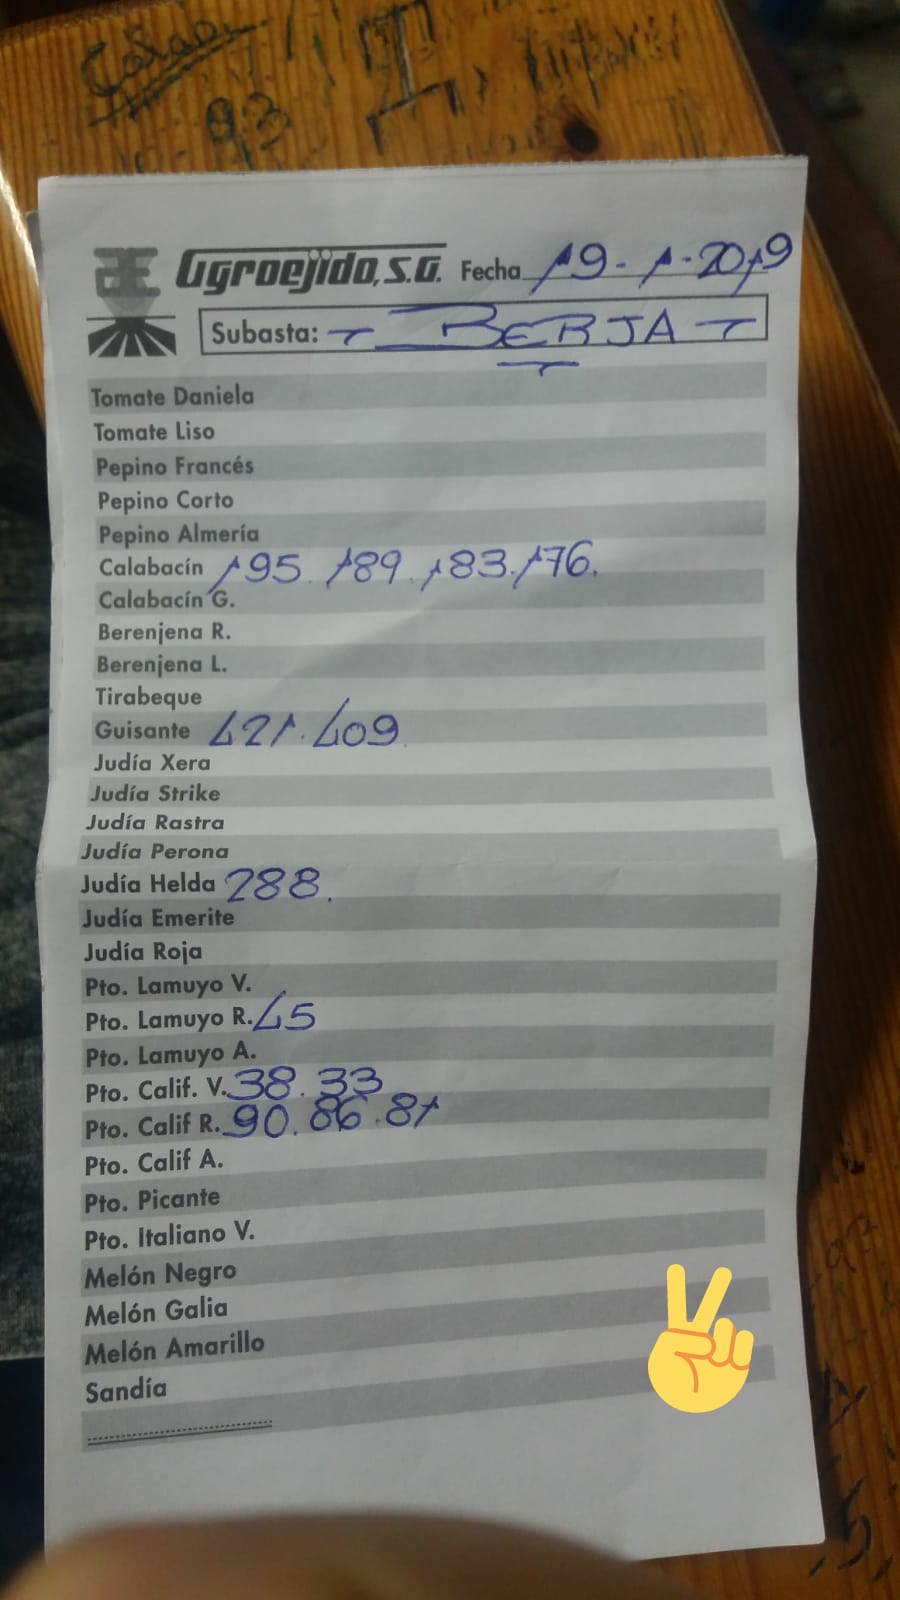 93
Agroejido, S.A. Fecha 19-1-2019
Subasta: - BERJA -
Tomate Daniela
Tomate Liso
Pepino Francés
Pepino Corto
Pepino Almería
Calabacín 195. 189. 183. 176.
Calabacín G.
Berenjena R.
Berenjena L.
Tirabeque
Guisante 421. 409.
Judía Xera
Judía Strike
Judía Rastra
Judía Perona
Judía Helda 288.
Judía Emerite
Judía Roja
Pto. Lamuyo V.
Pto. Lamuyo R. 45
Pto. Lamuyo A.
Pto. Calif. V. 38. 33
Pto. Calif R. 90. 86. 81
Pto. Calif A.
Pto. Picante
Pto. Italiano V.
Melón Negro
Melón Galia
Melón Amarillo
Sandía